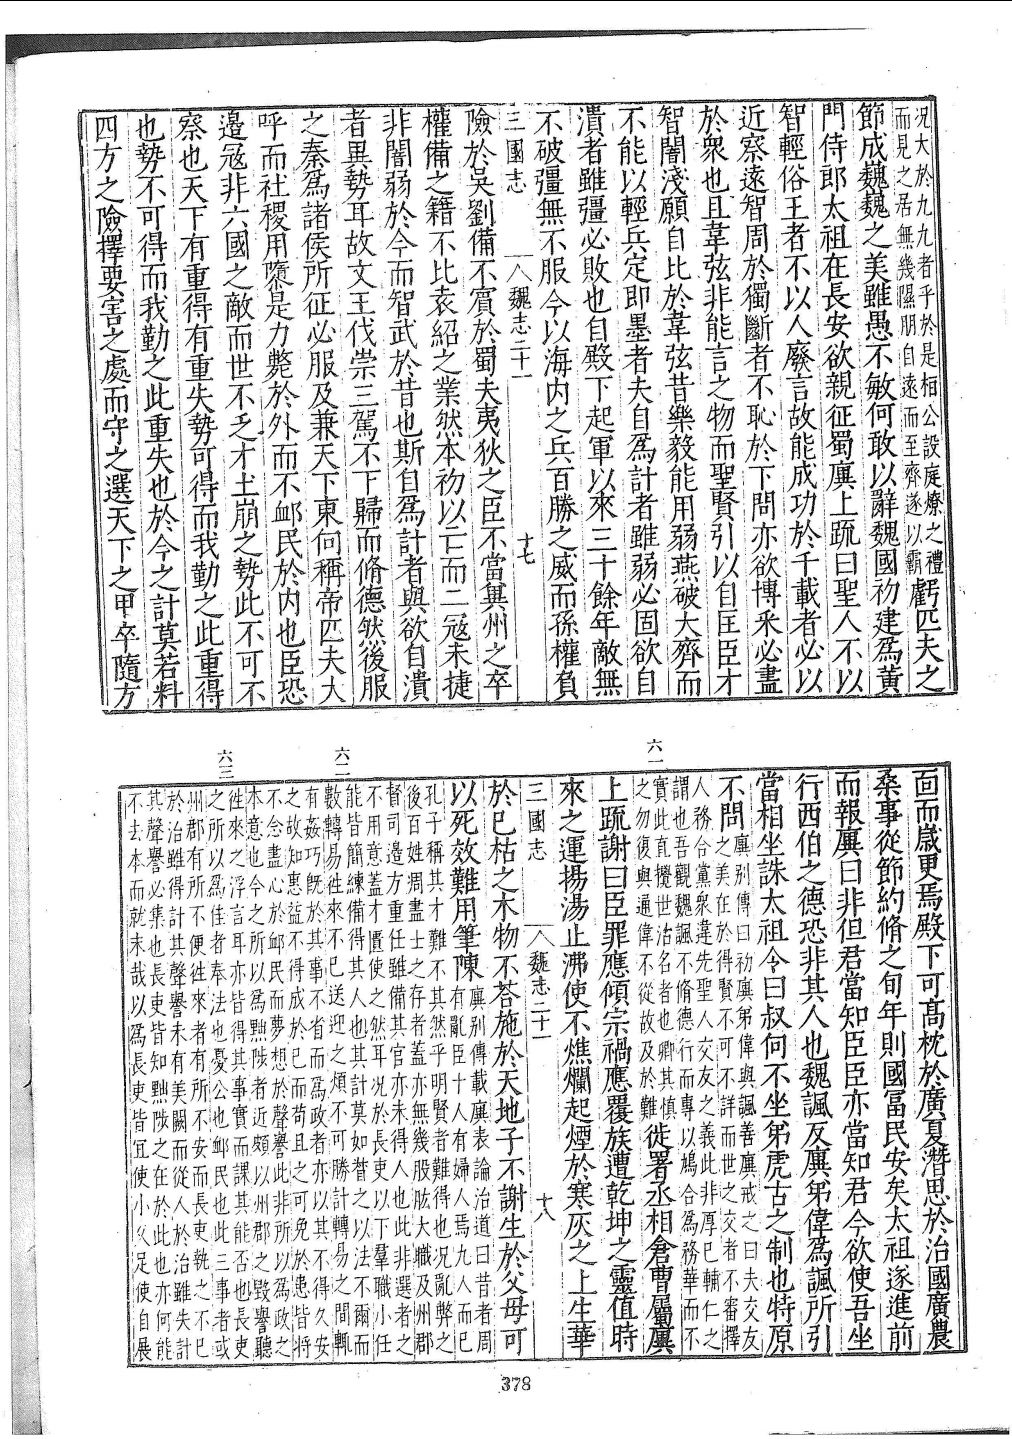 況大於九九者乎於是桓公設庭燎之禮
而見之居無幾隰朋自遠而至齊遂以霸
虧匹夫之
節成巍巍之美雖愚不敏何敢以辭魏國初建爲黃
門侍郎太祖在長安欲親征蜀廙上疏曰聖人不以
智輕俗王者不以人廢言故能成功於千載者必以
近察遠智周於獨斷者不恥於下問亦欲博采必盡
於衆也且韋弦非能言之物而聖賢引以自匡臣才
智闇淺願自比於韋弦昔樂毅能用弱燕破大齊而
不能以輕兵定即墨者夫自爲計者雖弱必固欲自
潰者雖彊必敗也自殿下起軍以來三十餘年敵無
不破彊無不服今以海内之兵百勝之威而孫權負
三國志 八 魏志二十一 十七
險於吳劉備不賔於蜀夫夷狄之臣不當兾州之卒
權備之籍不比袁紹之業然本初以亡而二冦未捷
非闇弱於今而智武於昔也斯自爲計者與欲自潰
者異勢耳故文王伐崇三駕不下歸而脩德然後服
之秦爲諸侯所征必服及兼天下東向稱帝匹夫大
呼而社稷用隳是力斃於外而不卹民於内也臣恐
邊冦非六國之敵而世不乏才土崩之勢此不可不
察也天下有重得有重失勢可得而我勤之此重得
也勢不可得而我勤之此重失也於今之計莫若料
四方之險擇要害之處而守之選天下之甲卒隨方
靣而歲更焉殿下可髙枕於廣夏潛思於治國廣農
桑事從節約脩之旬年則國冨民安矣太祖遂進前
而報廙曰非但君當知臣臣亦當知君今欲使吾坐
行西伯之德恐非其人也魏諷反廙弟偉爲諷所引
當相坐誅太祖令曰叔向不坐弟虎古之制也特原
不問
廙别傳曰初廙弟偉與諷善廙戒之曰夫交友
之美在於得賢不可不詳而世之交者不審擇
人務合黨衆違先聖人交友之義此非厚己輔仁之
謂也吾觀魏諷不脩德行而專以鳩合爲務華而不
實此直攪世沽名者也卿其慎
之勿復與通偉不從故及於難
徙署丞相倉曹屬廙
上疏謝曰臣罪應傾宗禍應覆族遭乾坤之靈值時
來之運揚湯止沸使不燋爛起煙於寒灰之上生華
三國志 八 魏志二十一 十八
於已枯之木物不荅施於天地子不謝生於父母可
以死效難用筆陳
廙别傳載廙表論治道曰昔者周
有亂臣十人有婦人焉九人而已
孔子稱其才難不其然乎明賢者難得也况亂弊之
後百姓凋盡士之存者蓋亦無幾股肱大職及州郡
督司邊方重任雖備其官亦未得人也此非選者之
不用意蓋才匱使之然耳況於長吏以下羣職小任
能皆簡練備得其人也其計莫如督之以法不爾而
數轉易徃來不已送迎之煩不可勝計轉易之間輒
有姦巧旣於其事不省而爲政者亦以其不得久安
之故知惠益不得成於己而苟且之可免於患皆將
不念盡心於卹民而夢想於聲譽此非所以爲政之
本意也今之所以爲黜陟者近頗以州郡之毀譽聽
徃來之浮言耳亦皆得其事實而課其能否也長吏
之所以爲佳者奉法也憂公也卹民也此三事者或
州郡有所不便徃來者有所不安而長吏執之不已
於治雖得計其聲譽未有美屬而從人於治雖失計
其聲譽必集也長吏皆知黜陟之在於此也亦何能
不去本而就末哉以爲長吏皆宜使小久足使自展
六一
六二
六三
378